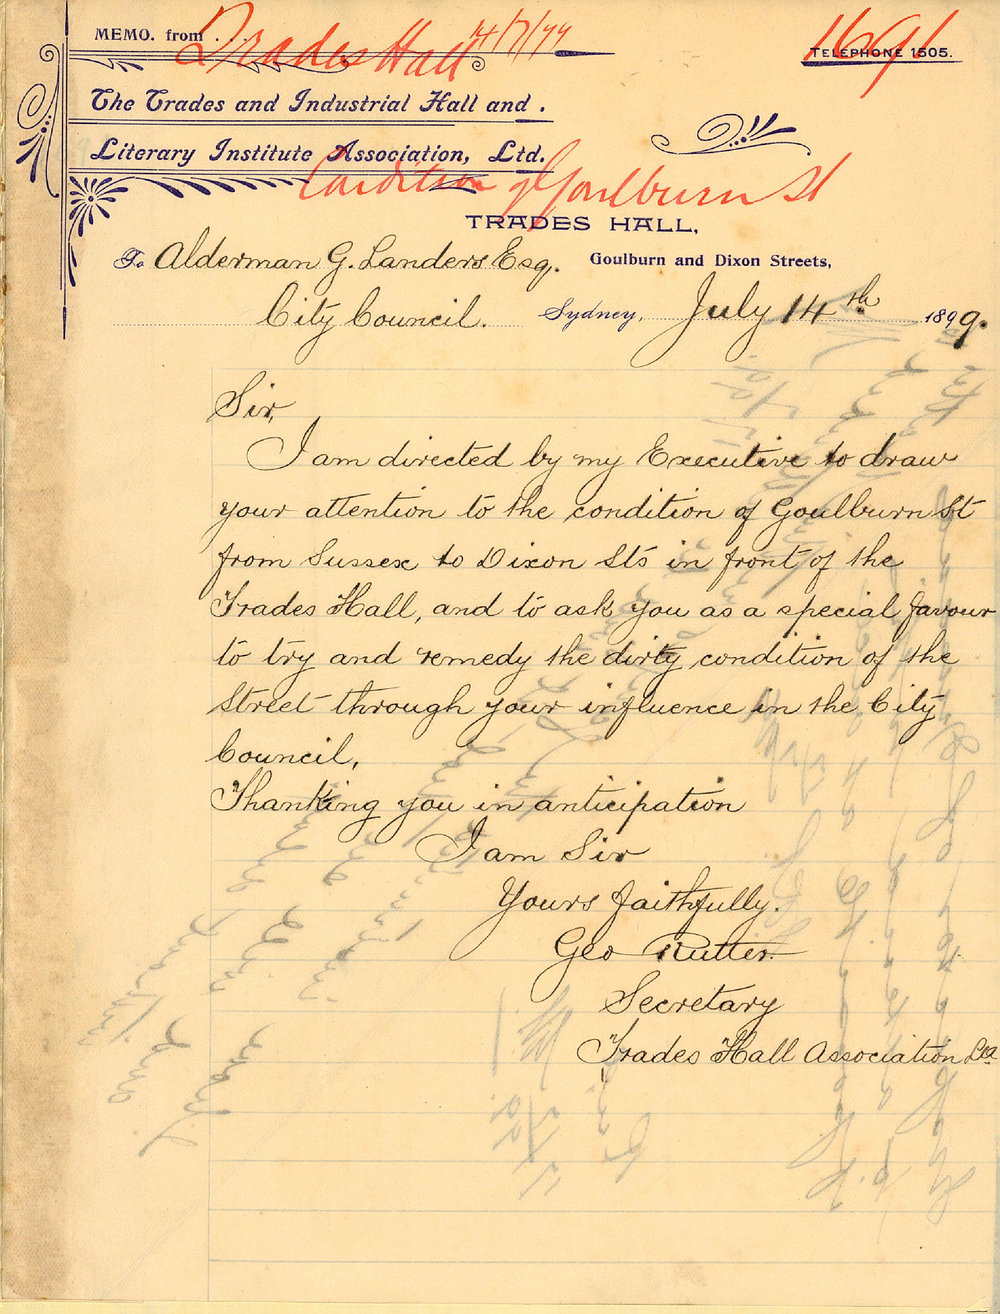 MEMO. from . . .
Trades Hall 14/7/99
1691
TELEPHONE 1505.
The Trades and Industrial Hall and .
Literary Institute Association, Ltd.
Condition of Goulburn St
TRADES HALL,
To Alderman G. Landers Esq.
Goulburn and Dixon Streets,
City Council.
Sydney, July 14th. 1899.
Sir,
I am directed by my Executive to draw
your attention to the condition of Goulburn St
from Sussex to Dixon Sts in front of the
Trades Hall, and to ask you as a special favour
to try and remedy the dirty condition of the
Street through your influence in the City
Council,
Thanking you in anticipation
I am Sir
Yours faithfully.
Geo Rutter.
Secretary
Trades Hall Association